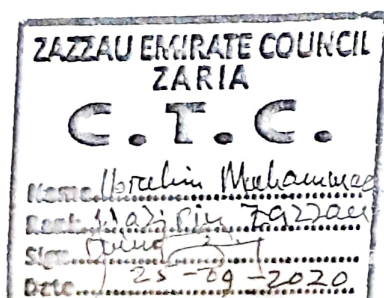 ZAZZAU EMIRATE COUNCIL
ZARIA
C.T.C.
Name Ibrahim Muhammad
Rank Wazirin Zazzau
Sign
Date 25-09-2020